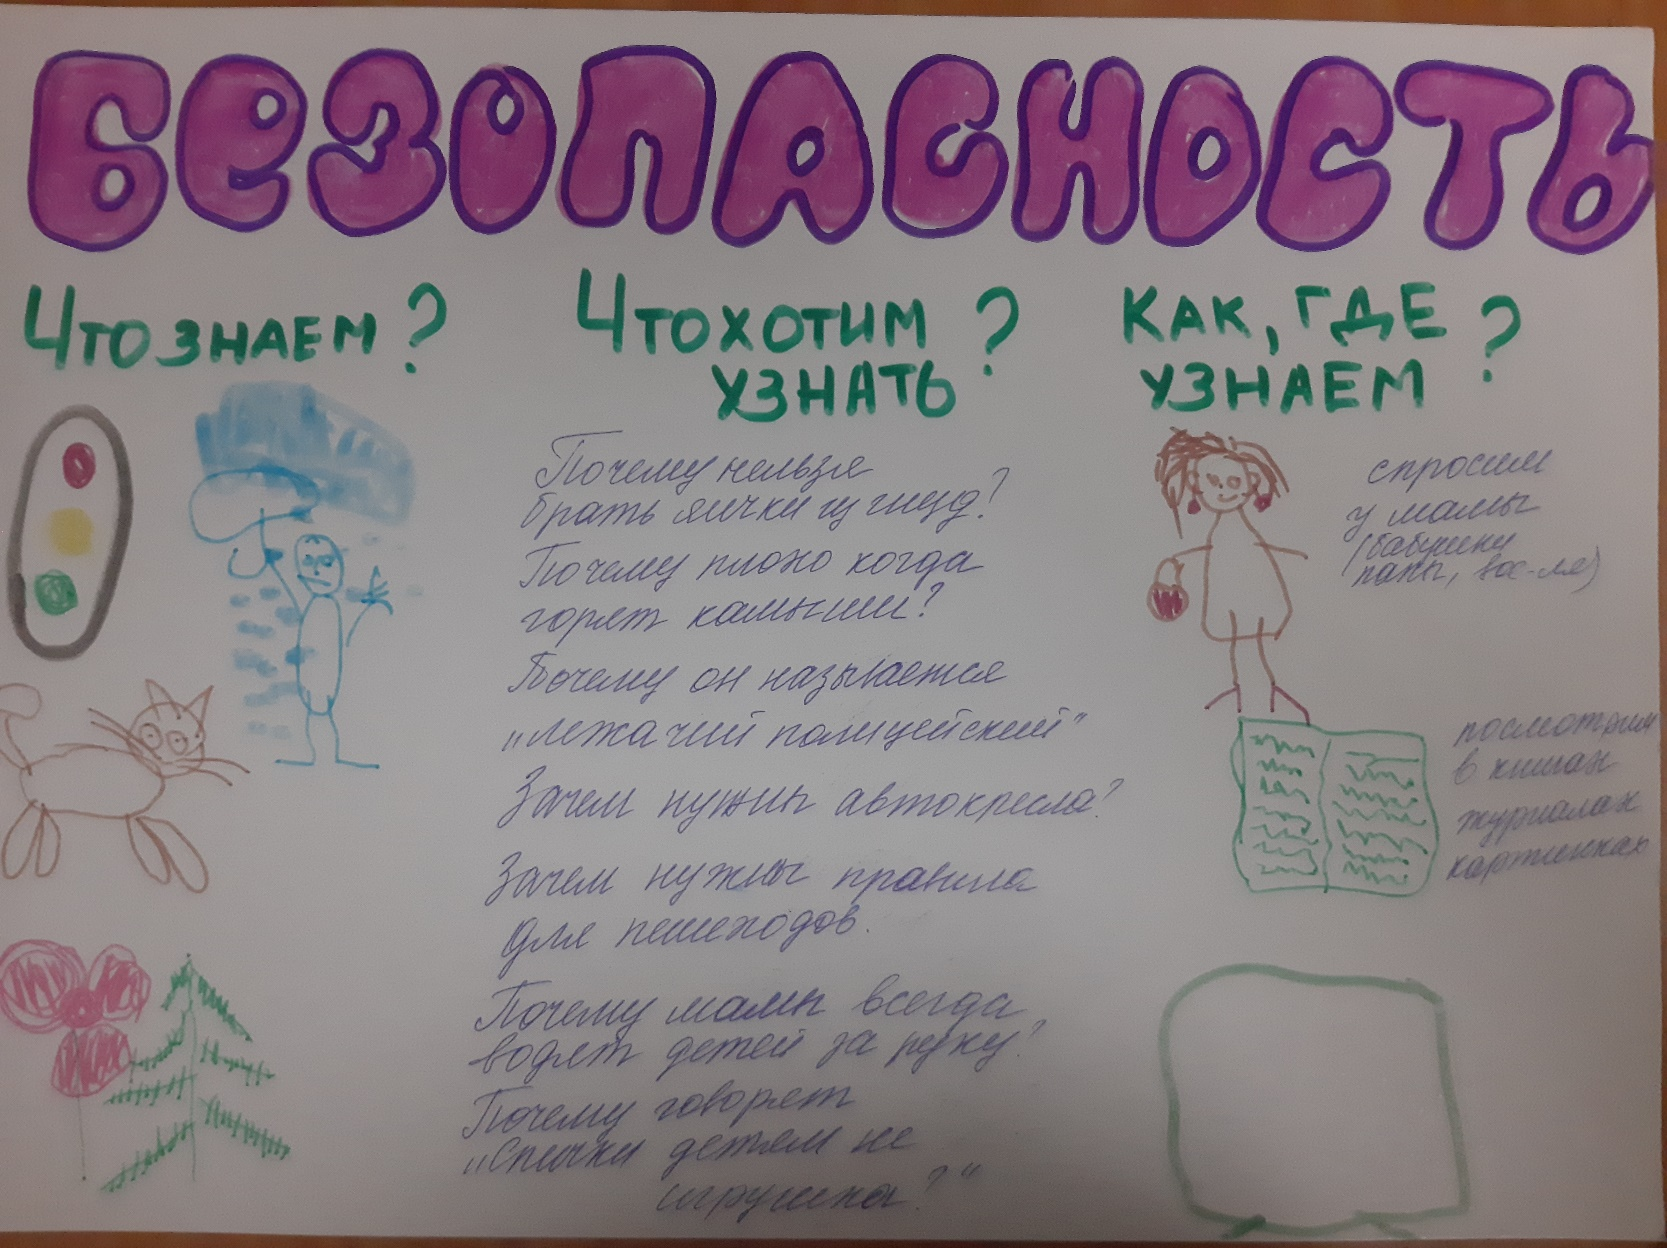 БЕЗОПАСНОСТЬ
Что знаем?
Что хотим
узнать?
Как, где
узнаем?
Почему нельзя
брать яички из гнёзд?
Почему плохо когда
горят камыши?
Почему он называется
„лежачий полицейский"
Зачем нужны автокресла?
Зачем нужны правила
для пешеходов.
Почему мамы всегда
водят детей за руку?
Почему говорят
„Спички детям не
игрушка?"
спросим
у мамы
(бабушки
папы, вос-ля)
посмотрим
в книгах
журналах
картинках